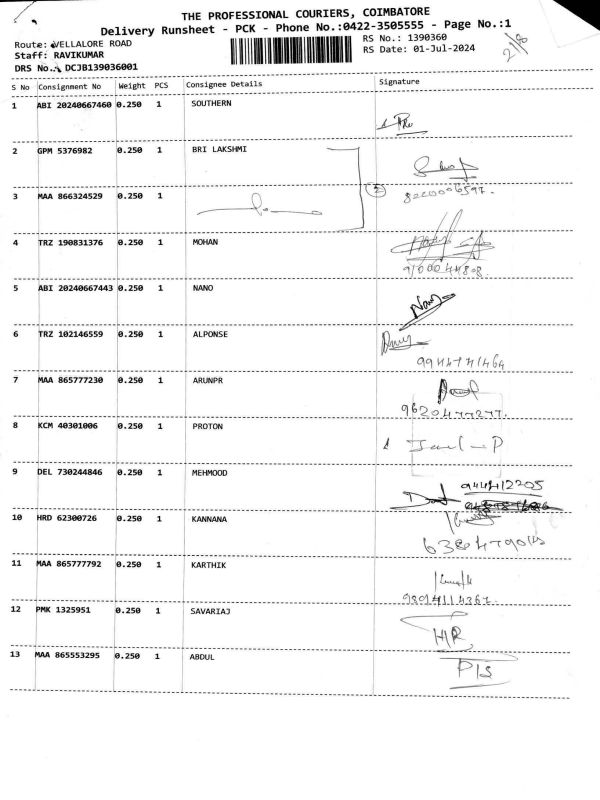 THE PROFESSIONAL COURIERS, COIMBATORE
Delivery Runsheet - PCK - Phone No.:0422-3505555 - Page No.:1
Route: VELLALORE ROAD RS No.: 1390360
Staff: RAVIKUMAR RS Date: 01-Jul-2024
DRS No. DCJB139036001
S No Consignment No Weight PCS Consignee Details Signature
1 ABI 20240667460 0.250 1 SOUTHERN
2 GPM 5376982 0.250 1 BRI LAKSHMI
3 MAA 866324529 0.250 1 2
4 TRZ 190831376 0.250 1 MOHAN
5 ABI 20240667443 0.250 1 NANO
6 TRZ 102146559 0.250 1 ALPONSE
9944741464
7 MAA 865777230 0.250 1 ARUNPR
9620477277.
8 KCM 40301006 0.250 1 PROTON
9 DEL 730244846 0.250 1 MEHMOOD
9444412205
10 HRD 62300726 0.250 1 KANNANA
11 MAA 865777792 0.250 1 KARTHIK
9894114367.
12 PMK 1325951 0.250 1 SAVARIAJ
H/R
13 MAA 865553295 0.250 1 ABDUL
P/S